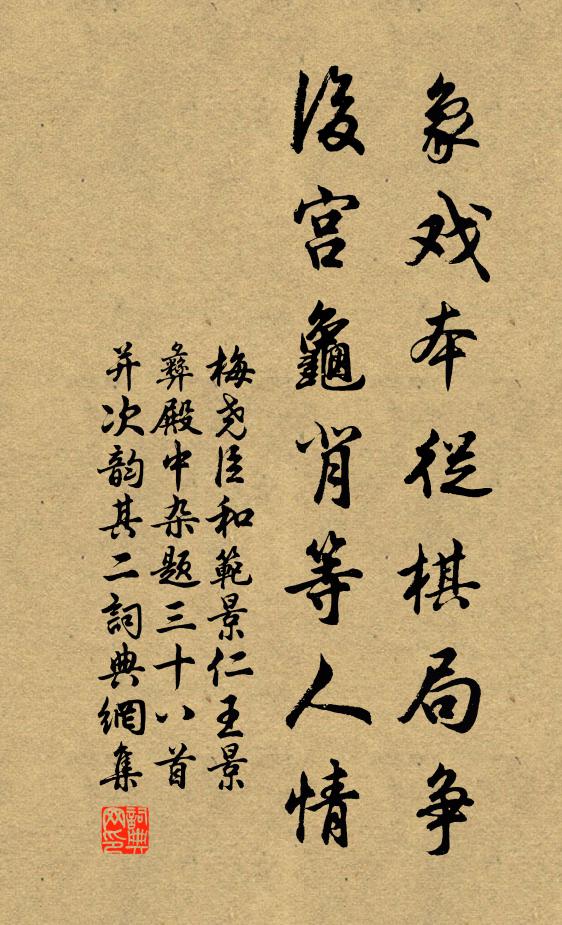 象戏本從棋局争
後宫龜背等人情
梅尧臣和範景仁王景
彝殿中杂题三十八首
并次韵其二詞典網集
詞典网印